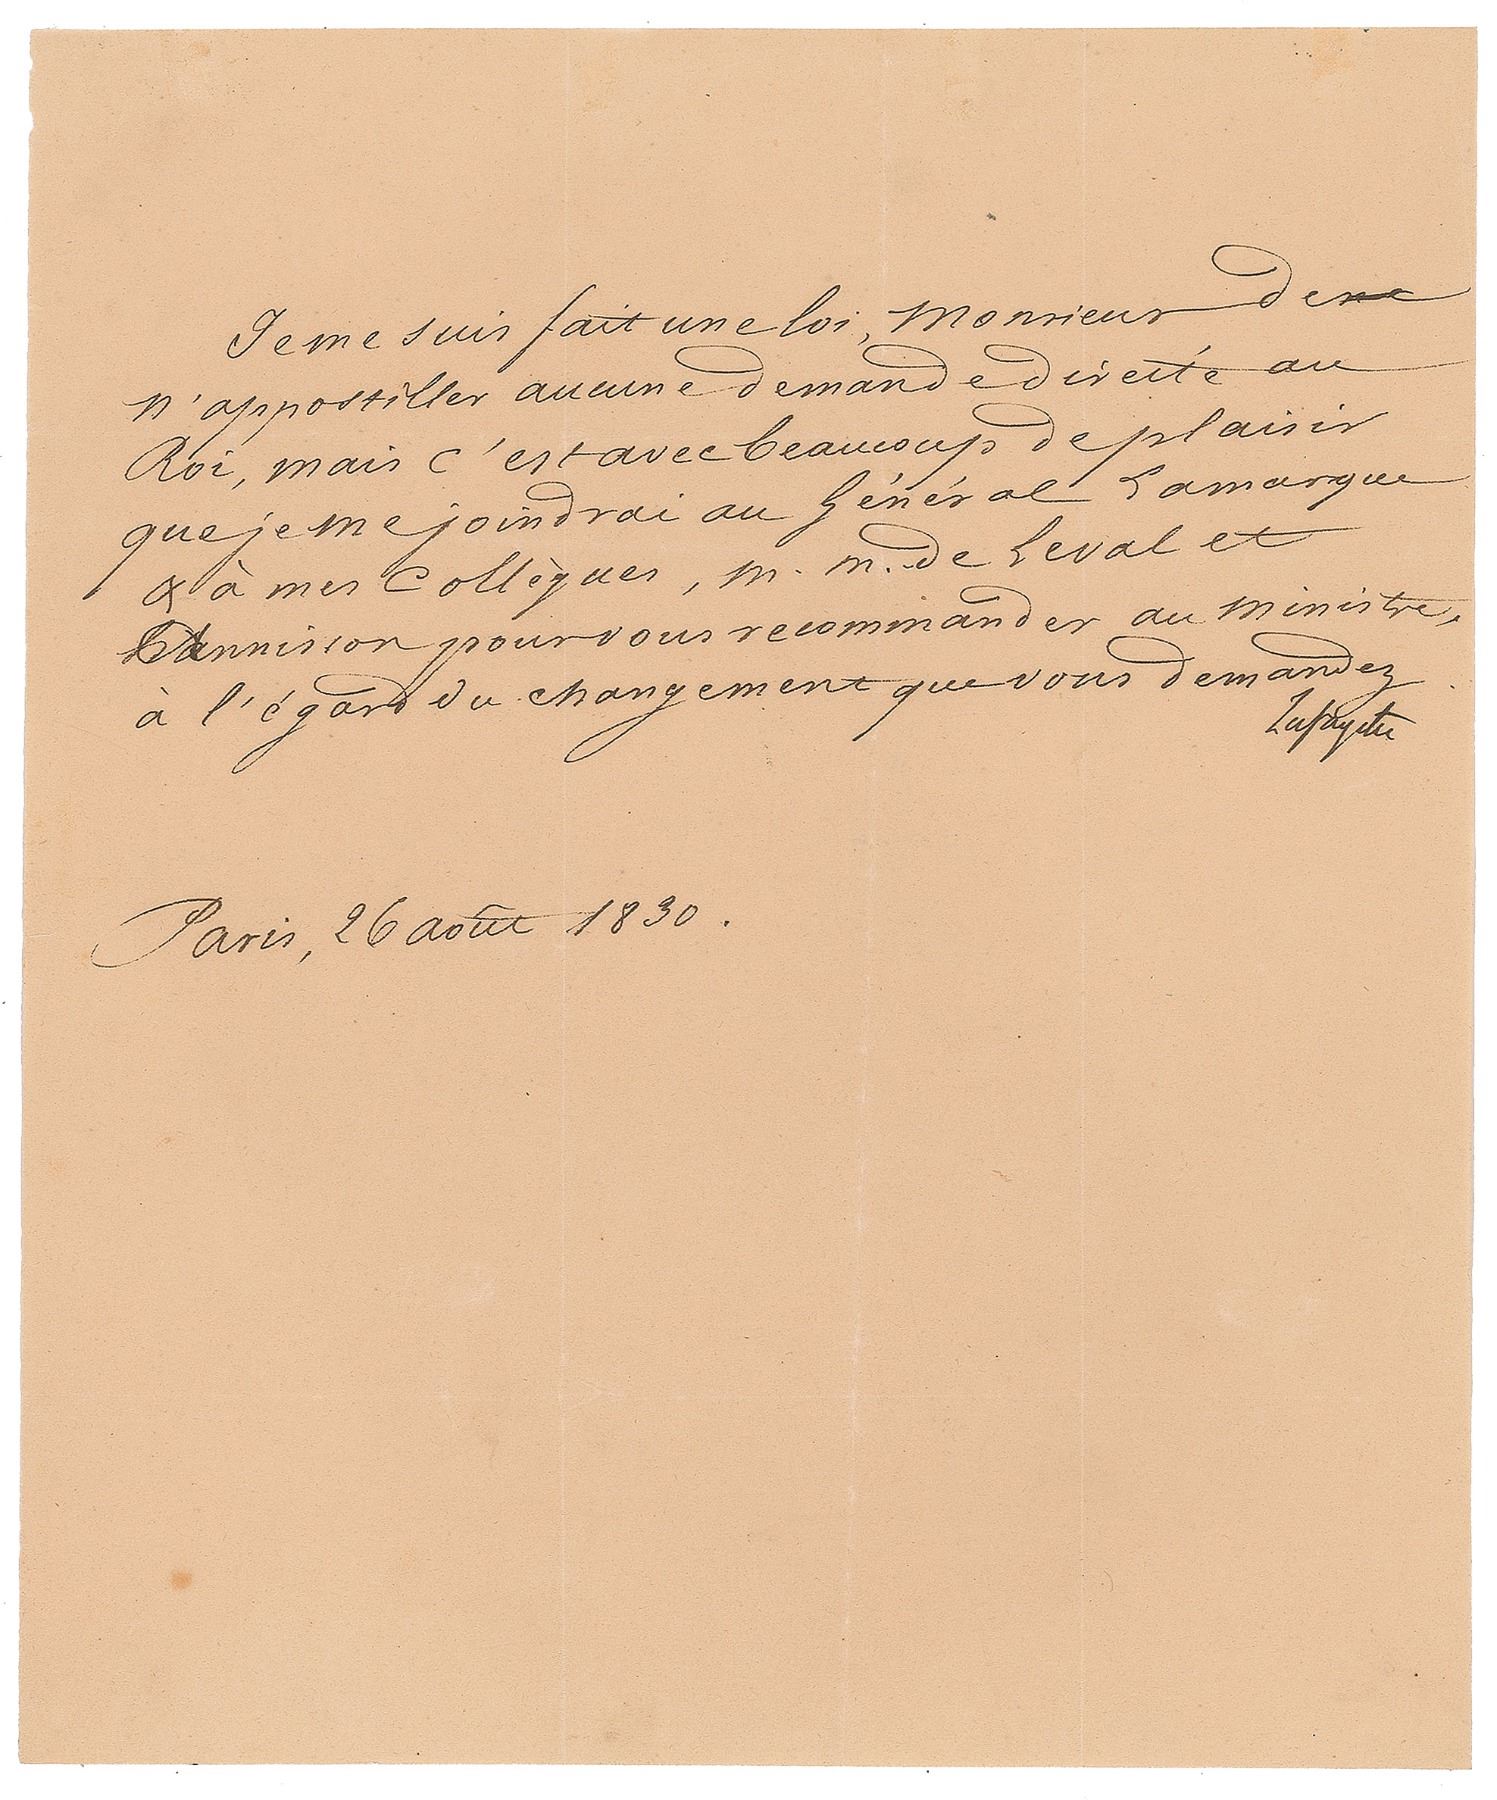 Je me suis fait une loi, Monsieur de
n'appostiller aucune demande directe au
Roi, mais c'est avec beaucoup de plaisir
que je me joindrai au Général Lamarque
& à mes Collègues, M. M. de Leval et
pour vous recommander au Ministre,
à l'égard du changement que vous demandez
Lafayette
Paris, 26 août 1830.